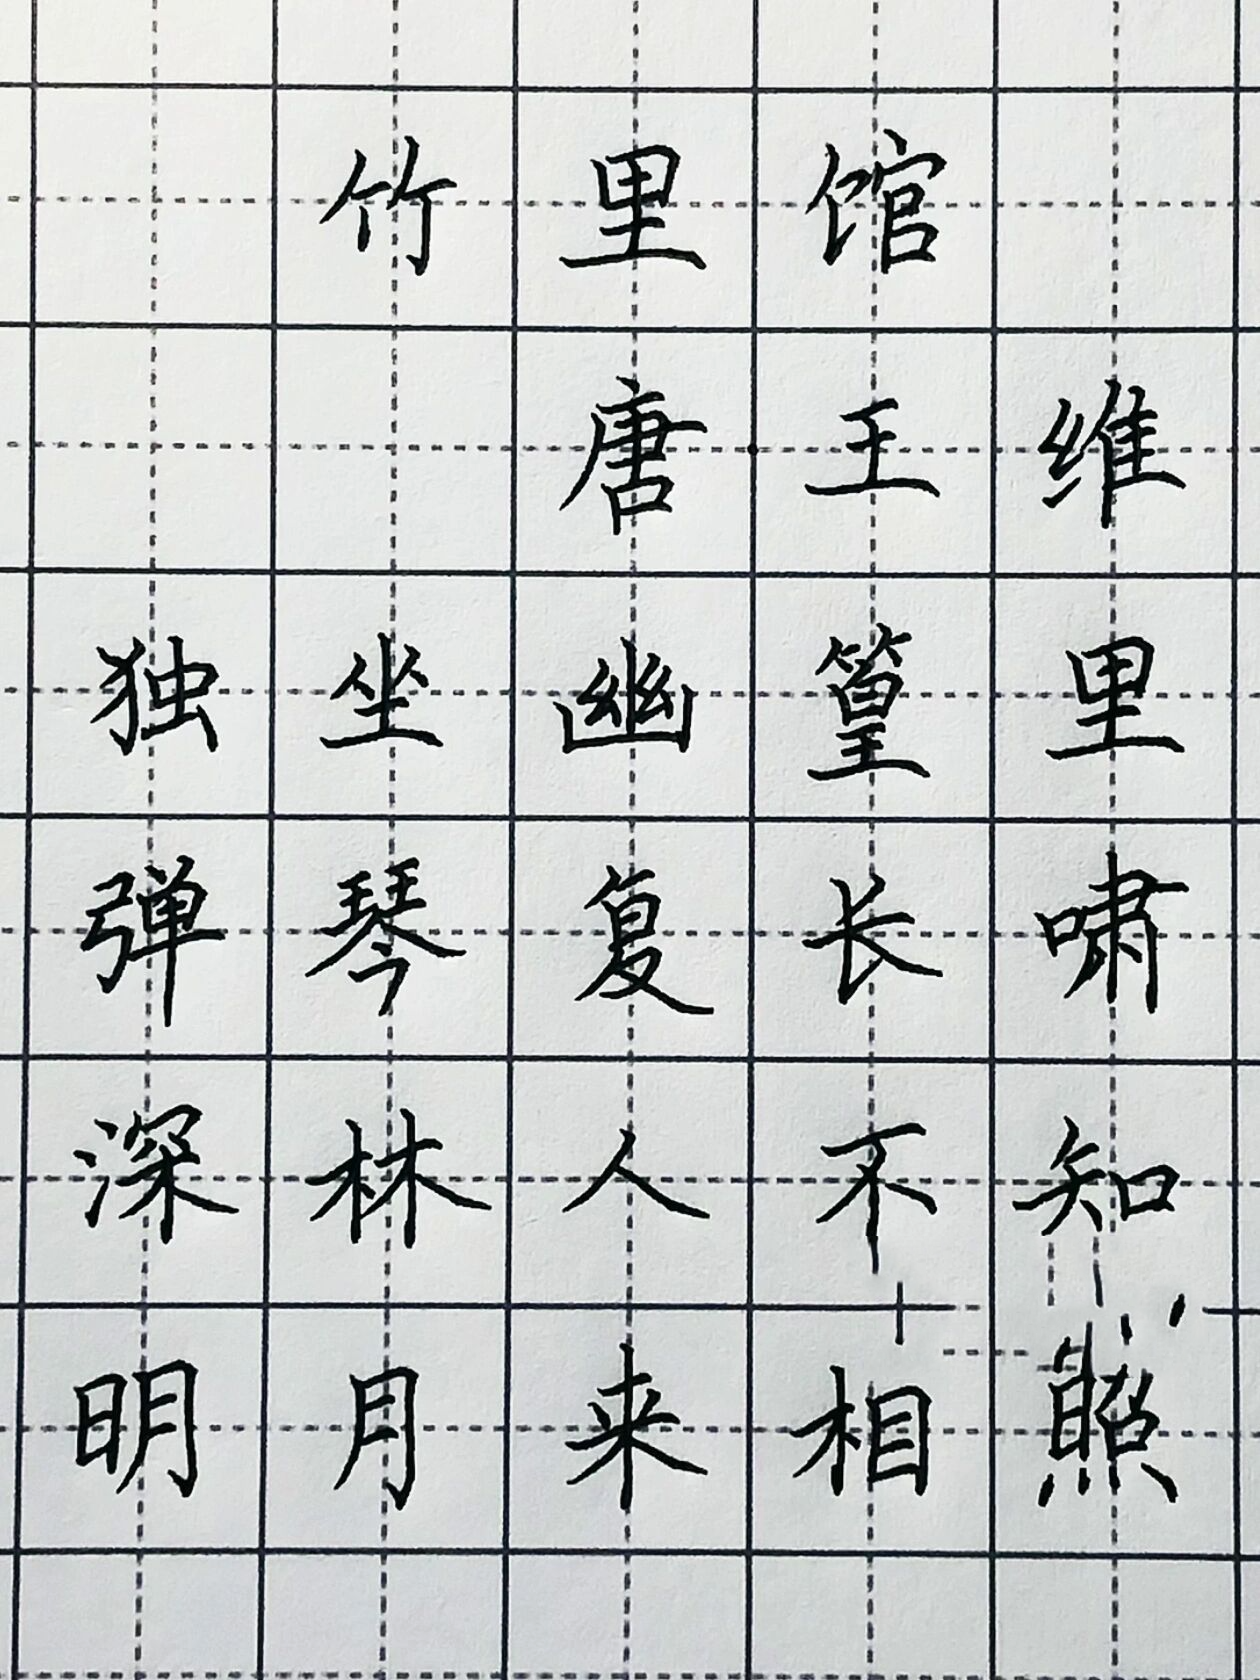 竹里馆
唐王维
独坐幽篁里
弹琴复长啸
深林人不知
明月来相照